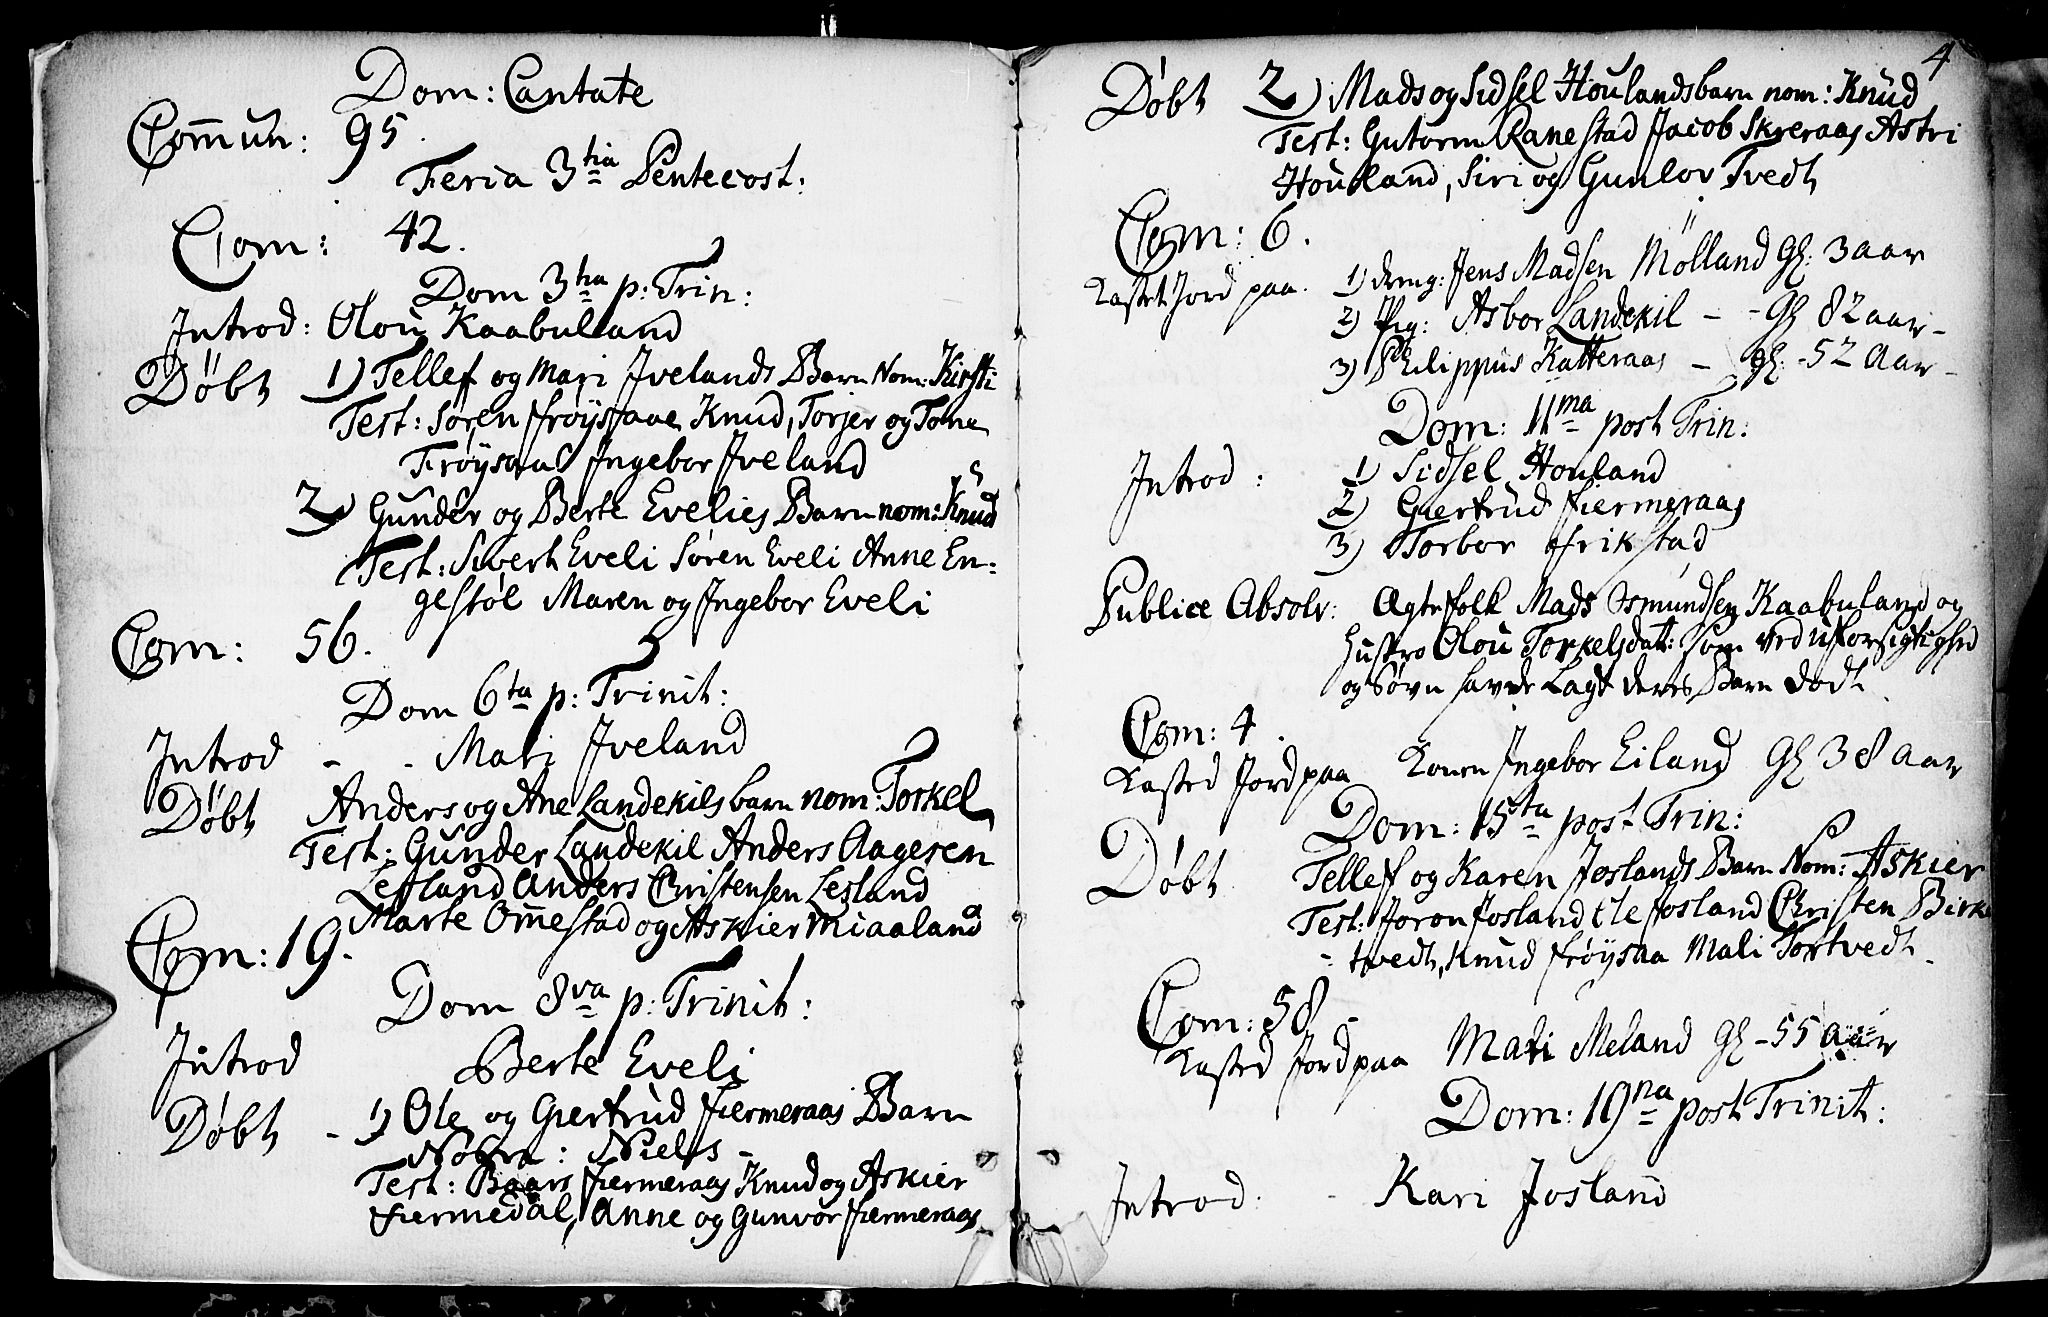 Dom: Cantate
Com̄un: 95.
Feria 3tia Pentecost:
Com: 42.
Dom 3tia p: Trin:
Introd: Olou Kaabuland
Døbt 1) Tellef og Mari Ivelands Barn Nom: Kirsti
Test: Søren Frøysaae Knud, Torjer og Tone
Frøysaa Ingebor Iveland
2) Gunder og Berte Evelies Barn nom: Knud
Test: Sivert Eveli Søren Eveli Anne En=
gestøl Maren og Ingebor Eveli
Com: 56.
Dom 6ta p: Trinit:
Introd - - Mari Iveland
Døbt Anders og Ane Landekils barn nom: Torkel
Test: Gunder Landekil Anders Aagesen
Lesland Anders Christensen Lesland
Marte Om̄estad og Askier Miaaland
Com: 19.
Dom 8va p: Trinit:
Introd Berte Eveli
Døbt - 1) Ole og Giertrud Fiermeraas Barn
Nom: Niels -
Test: Baars Fiermeraas Knud og Askier
Fiermedal, Anne og Gunvor Fiermeraas
4
Døbt 2) Mads og Sidsel Houlands barn nom: Knud
Test: Gutorm Ranestad Jacob Skreraas Astri
Houland, Siri og Gunlov Tvedt
Com: 6.
Kastet Jord paa. 1) dreng: Jens Madsen Mölland Gl: 3 aar
2) Pig: Asbor Landekil - - Gl 82 aar -
3) Philippus Katteraas - gl: - 52 Aar -
Dom: 11ma post Trin:
Introd: 1) Sidsel Houland
2) Giertrud Fiermeraas
3) Torbor Frikstad
Publice Absolv: Ægtefolk Mads Osmundsen Kaabuland og
hustro Olou Torkelsdatt: som ved uforsigtighed
og Søvn havde Lagt deres Barn dødt
Com: 4.
Kasted Jord paa Konen Ingebor Eiland Gl 38 aar
Dom: 15ta post Trin:
Døbt Tellef og Karen Joslands Barn Nom: Askier
Test: Joron Josland Ole Josland Christen Birke
- tvedt, Knud Frøysaa Mali Tortvedt -
Com: 58 -
Kasted Jord paa Mari Meland Gl - 55 aar
Dom: 19na post Trinit:
Introd: - Kari Josland